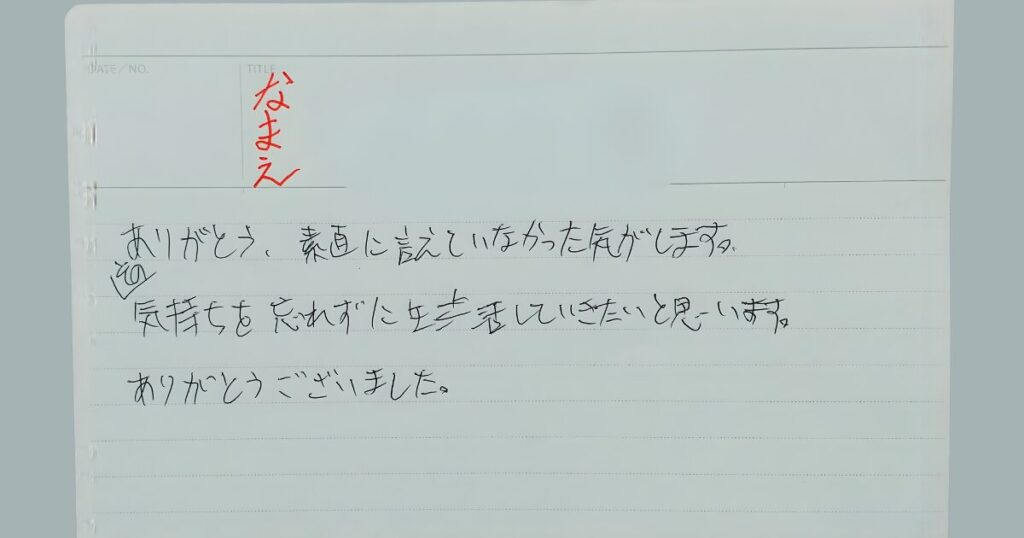 DATE/NO. TITLE
なまえ
ありがとう、素直に言えていなかった気がします。
その
気持ちを忘れずに生活していきたいと思います。
ありがとうございました。